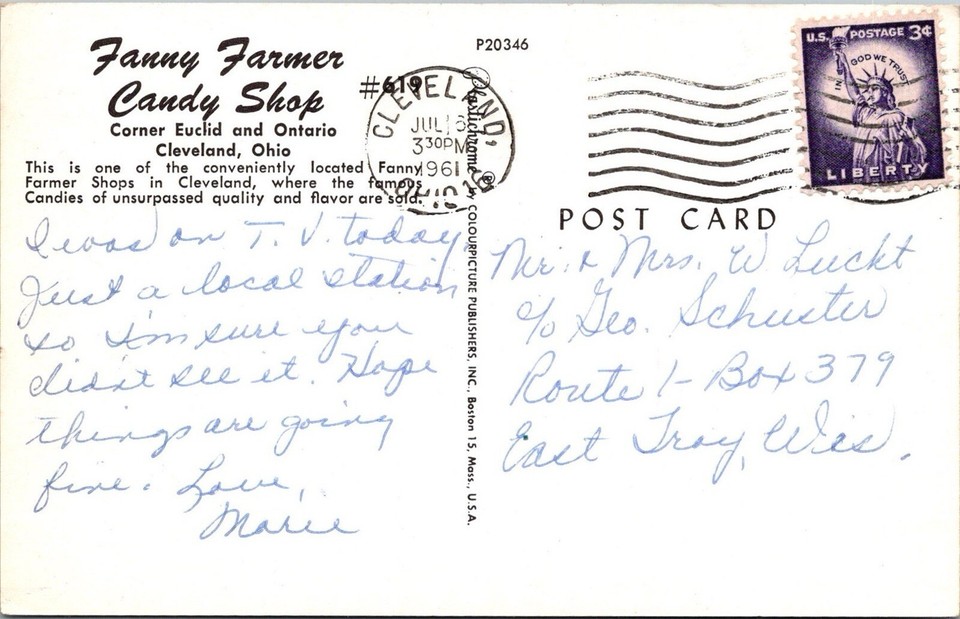 Fanny Farmer
Candy Shop
Corner Euclid and Ontario
Cleveland, Ohio
This is one of the conveniently located Fanny
Farmer Shops in Cleveland, where the famous
Candies of unsurpassed quality and flavor are sold.
#619
P20346
CLEVELAND,
JUL
3 30 PM
1961
OHIO
U.S. POSTAGE 3¢
IN GOD WE TRUST
LIBERTY
POST CARD
Plastichrome ® by COLOURPICTURE PUBLISHERS, INC., Boston 15, Mass., U.S.A.
I was on T. V. today.
Just a local station
so I'm sure you
didn't see it. Hope
things are going
fine. Love,
Marie
Mr. & Mrs. W Luckt
c/o Geo. Schuster
Route 1 - Box 379
East Troy, Wis.